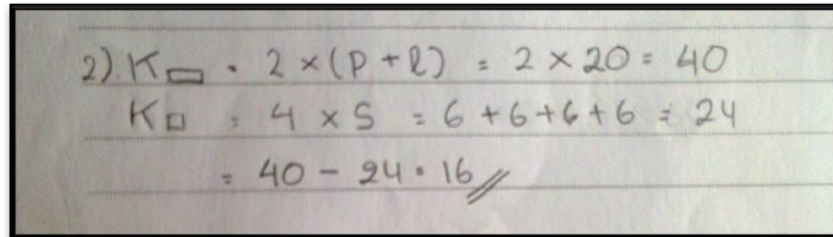 2). K▭ = 2 × (P + l) = 2 × 20 = 40
K□ = 4 × S = 6 + 6 + 6 + 6 = 24
= 40 - 24 = 16 //